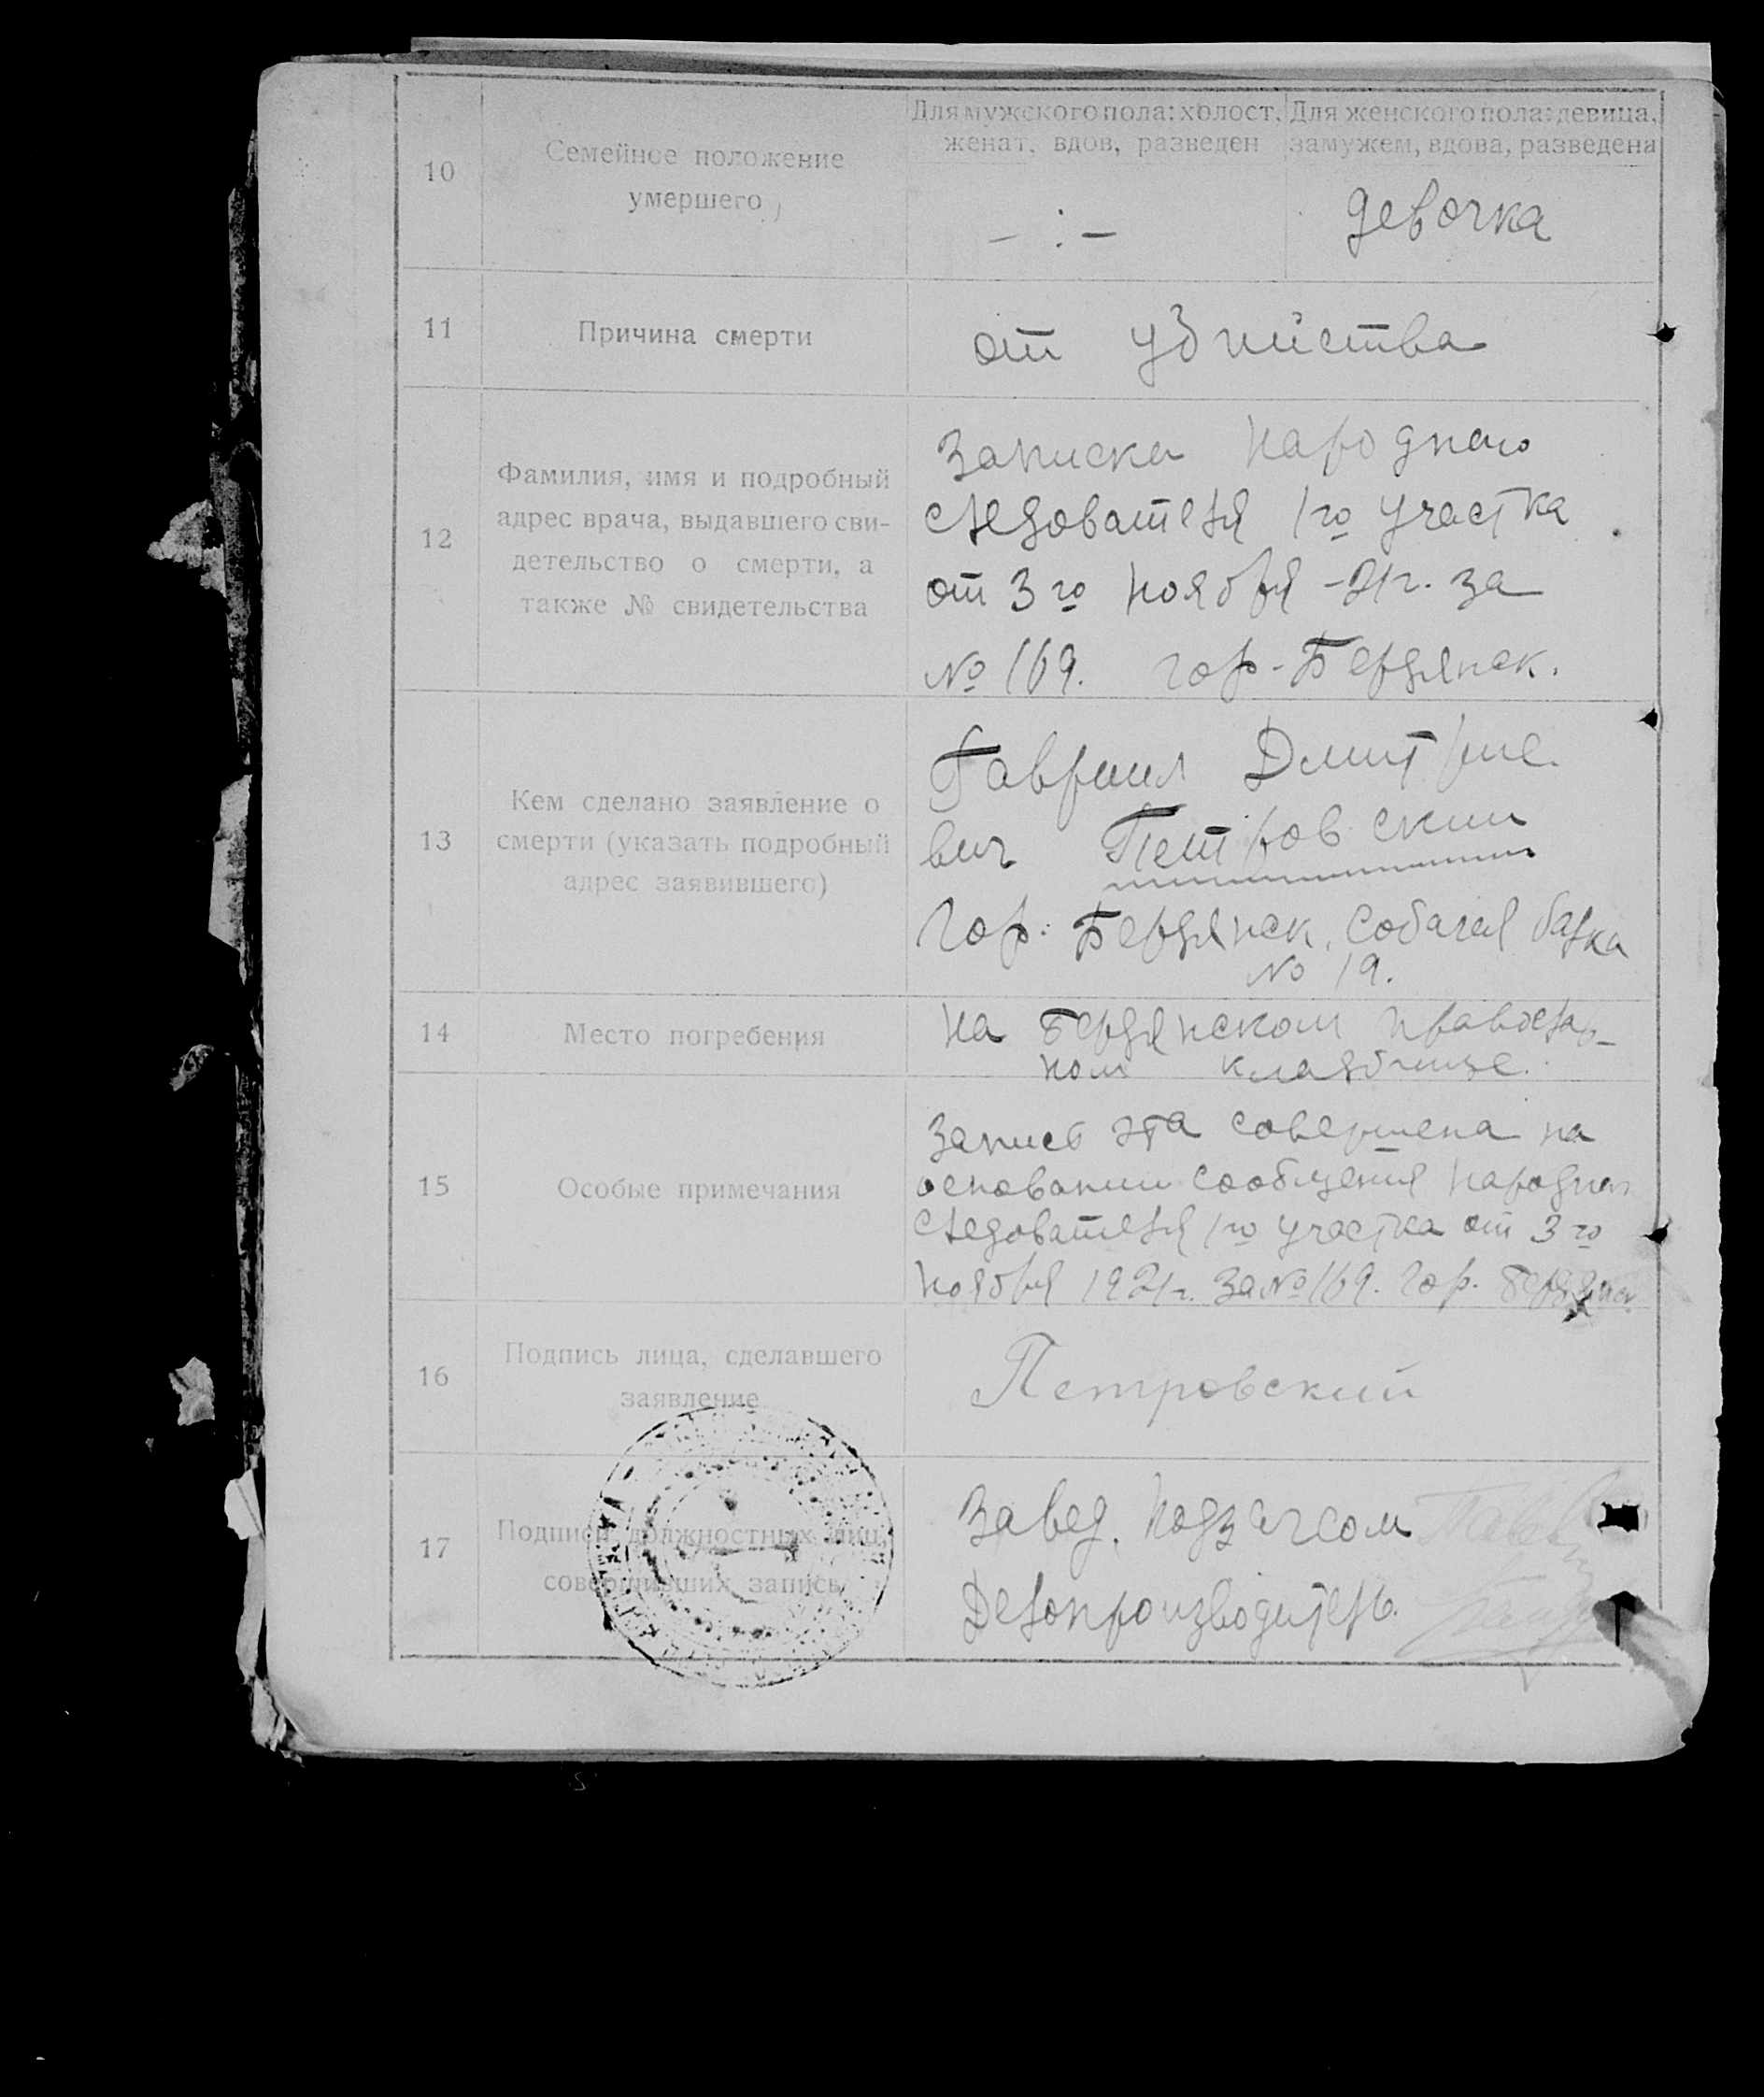 10
Семейное положение
умершего
Для мужского пола: холост,
женат, вдов, разведен
Для женского пола: девица,
замужем, вдова, разведена
— : —
девочка
11
Причина смерти
от убийства
12
Фамилия, имя и подробный
адрес врача, выдавшего сви-
детельство о смерти, а
также № свидетельства
Записка народного
следователя 1го участка
от 3го ноября -21г. за
№ 169. гор-Бердянск.
13
Кем сделано заявление о
смерти (указать подробный
адрес заявившего)
Гавриил Дмитрие-
вич Петровский
Гор. Бердянск, Собачая балка
№ 19.
14
Место погребения
на Бердянском православ-
ном кладбище.
15
Особые примечания
Запись эта совершена на
основании сообщения народного
следователя 1го участка от 3го
ноября 1921г. за № 169. Гор. Бердянск
16
Подпись лица, сделавшего
заявление
Петровский
17
Подписи должностных лиц,
совершивших запись
Завед. Подзагсом
Делопроизводитель.